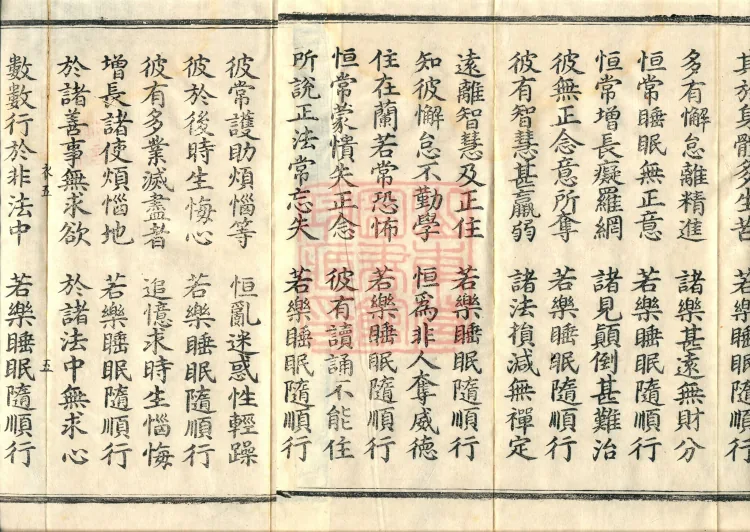 其於身體多生苦
多有懈怠離精進　諸樂甚遠無財分
恒常睡眠無正意　若樂睡眠隨順行
恒常增長癡羅網　諸見顛倒甚難治
彼無正念意所奪　若樂睡眠隨順行
彼有智慧甚羸弱　諸法損減無禪定
遠離智慧及正住　若樂睡眠隨順行
知彼懈怠不勤學　恒為非人奪威德
住在蘭若常恐怖　若樂睡眠隨順行
恒常蒙憒失正念　彼有讀誦不能住
所說正法常忘失　若樂睡眠隨順行
彼常護助煩惱等　恒亂迷惑性輕躁
彼於後時生悔心　若樂睡眠隨順行
彼有多業滅盡者　追憶求時生惱悔
增長諸使煩惱地　若樂睡眠隨順行
於諸善事無求欲　於諸法中無求心
衣五　五
數數行於非法中　若樂睡眠隨順行